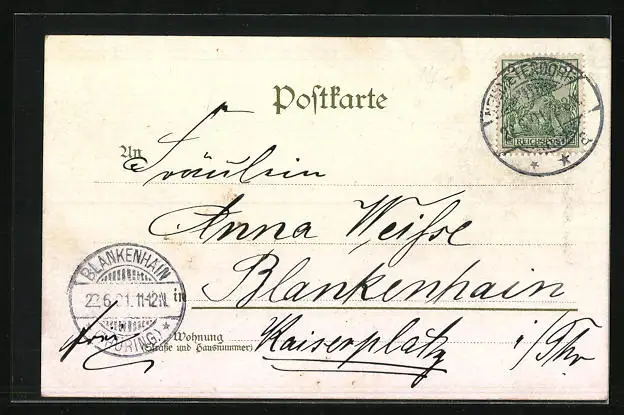 Postkarte
REICHSPOST
An Fräulein
Anna Weisse
in Blankenhain
BLANKENHAIN
22.6.01.11-12N.
(THÜRING)
frei
Wohnung Kaiserplatz i/Thr.
(Straße und Hausnummer)